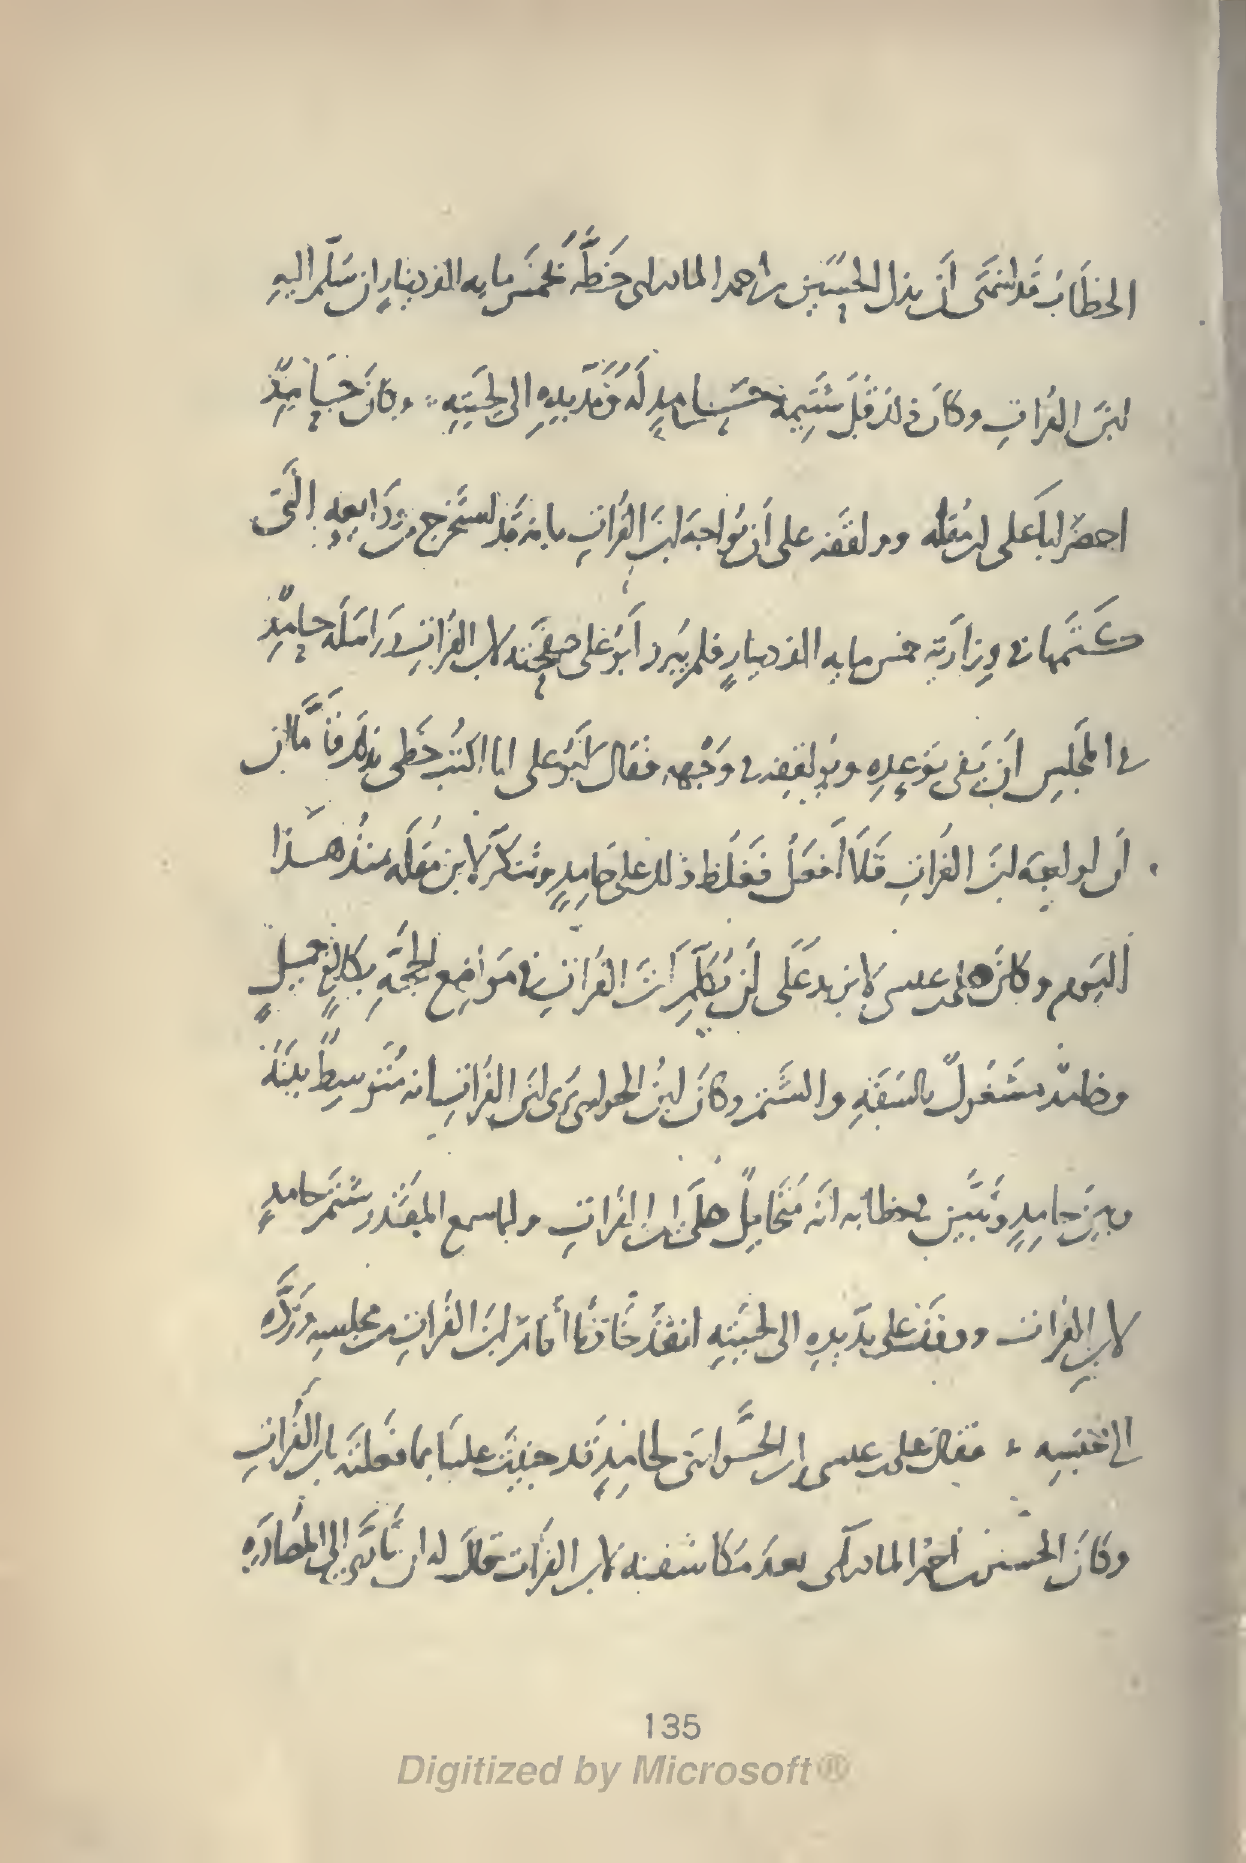 الخطاب قد انتهى أن بذل الحسين بن أحمد المادرائى خطّه بخمس مايه الف دينار ان سلّم اليه
ابن الفرات وكان فى ذلك قبل شتيمة حامد له ومد يده إلى لحيته وكان حامد
احضر ابا على ابن مقله وواقفه على أن يواجه ابن الفرات بانه قد استخرج من ودايعه التى
كتمها فى وزارته خمس مايه الف دينار فلم يرد أبو على لابن الفرات وراسله حامد
فى المجلس أن يفى بوعده ويواقفه فى وجهه فقال ابو على انا اكتب خطى بذلك فأمّا
أن اواجه ابن الفرات فلا أفعل فغلظ ذلك على حامد وتنكّر لابن مقله منذ هذا
اليوم وكان على بن عيسى لا يزيد على أن يكلّم ابن الفرات فى مواضع الحجّة بكلام جميل
وحامد مشغول بالسفه والشتم وكان ابن الحوارى يرى ابن الفرات انه متوسط بينه
وبين حامد وتبيّن فى خطابه انه متحامل على ابن الفرات ولما سمع المقتدر شتم حامد
لابن الفرات ووقف على مدّ يده الى لحيته انفذ خادما أقام ابن الفرات من مجلسه وردّه
الى محبسه فقال على بن عيسى وابن الحوارى لحامد قد جنيت علينا بما فعلته بابن الفرات
وكان الحسين بن أحمد المادرائى بعد مكاشفته لابن الفرات قال له ان تأدّى إلى المصادره
135
Digitized by Microsoft®